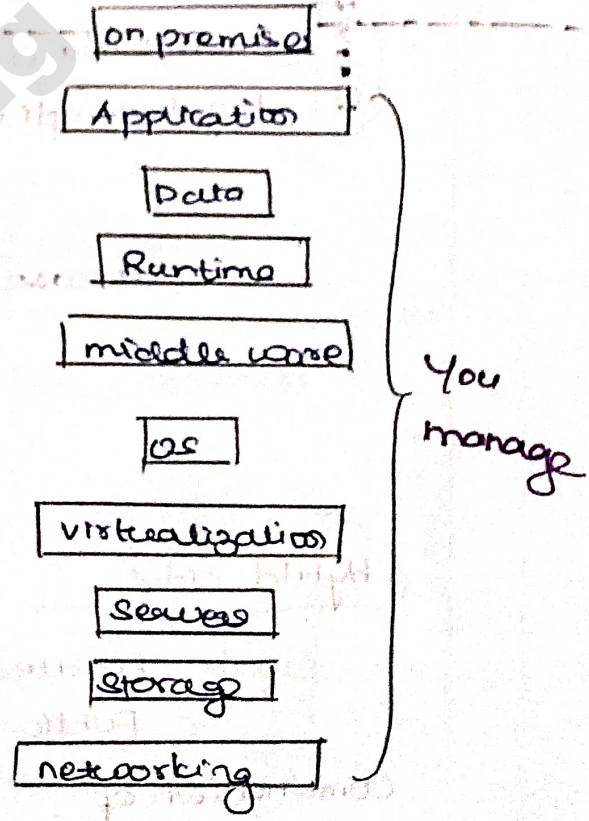 on premise
Application
Data
Runtime
middle ware
You
manage
OS
virtualization
Servers
storage
networking